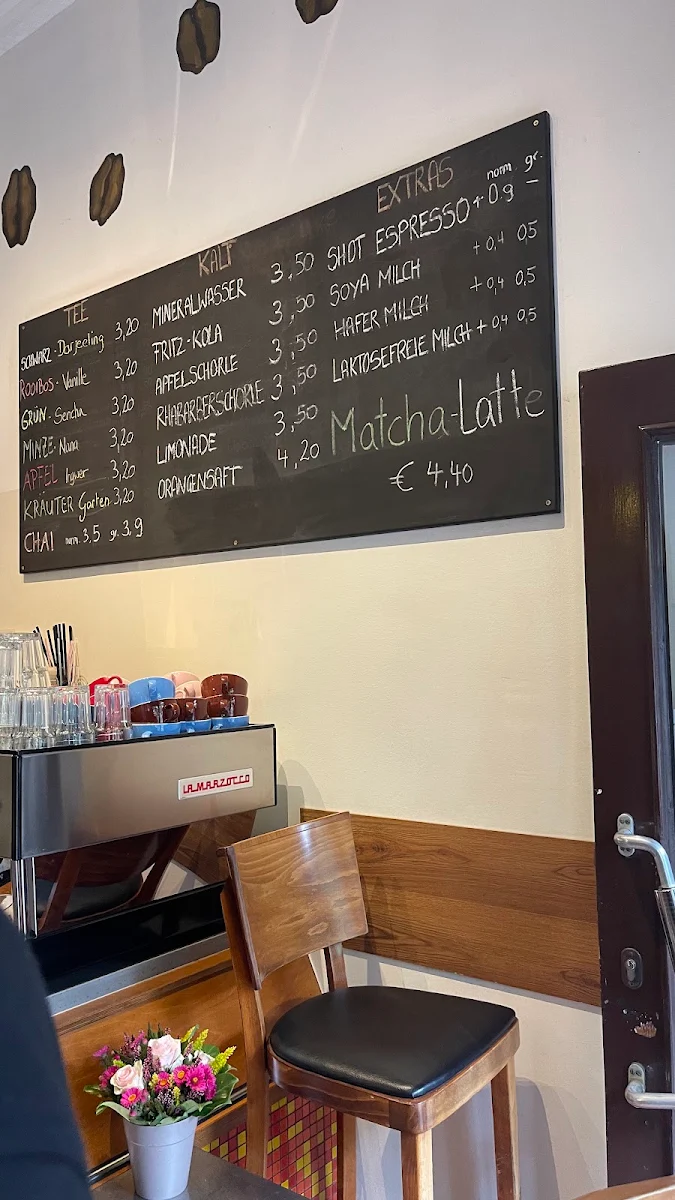 TEE
SCHWARZ - Darjeeling 3,20
ROOIBOS - Vanille 3,20
GRÜN - Sencha 3,20
MINZE - Nana 3,20
APFEL Ingwer 3,20
KRÄUTER Garten 3,20
CHAI norm. 3,5 gr. 3,9
KALT
MINERALWASSER 3,50
FRITZ-KOLA 3,50
APFELSCHORLE 3,50
RHABARBERSCHORLE 3,50
LIMONADE 3,50
ORANGENSAFT 4,20
EXTRAS
norm. gr.
SHOT ESPRESSO + 0.9 –
SOYA MILCH + 0,4 0,5
HAFER MILCH + 0,4 0,5
LAKTOSEFREIE MILCH + 0,4 0,5
Matcha-Latte
€ 4,40
LA MARZOCCO